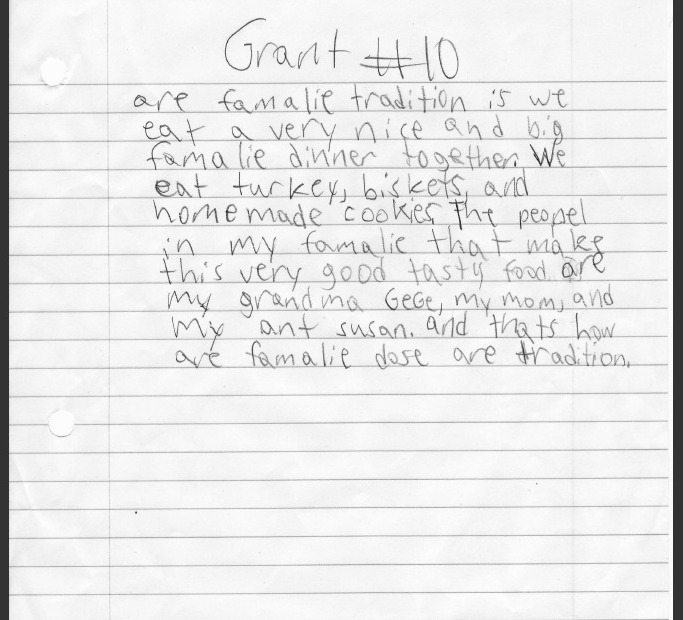 Grant #10
are famalie tradition is we
eat a very nice and big
famalie dinner together. We
eat turkey, biskets, and
homemade cookies. The peopel
in my famalie that make
this very good tasty food are
my grandma GeGe, my mom, and
my ant susan. and thats how
are famalie dose are tradition.